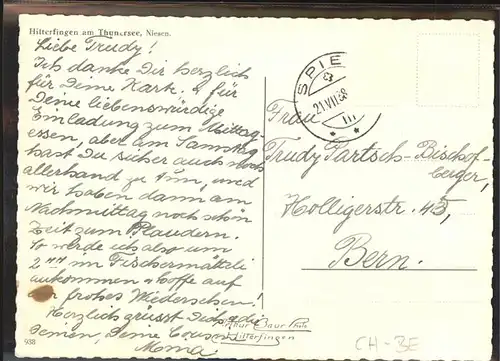 Hilterfingen am Thunersee, Niesen.
Liebe Trudy!
Ich danke Dir herzlich
für Deine Kart. & für
Deine liebenswürdige
Einladung zum Mittag-
essen, aber am Samstag
hast Du sicher auch noch
allerhand zu tun, und
wir haben dann am
Nachmittag noch schön
Zeit zum Plaudern.
So werde ich also um
2 im Fischermätteli
ankommen & hoffe auf
ein frohes Wiedersehen!
Herzlich grüsst Dich & die
Deinen, Deine Cousine
Moma
938
SPIE
21.VII.68
III
Frau
Trudy Partsch-Bischof-
berger,
Holligerstr. 45,
Bern.
Arthur Baur Phot.
Hilterfingen
CH-BE